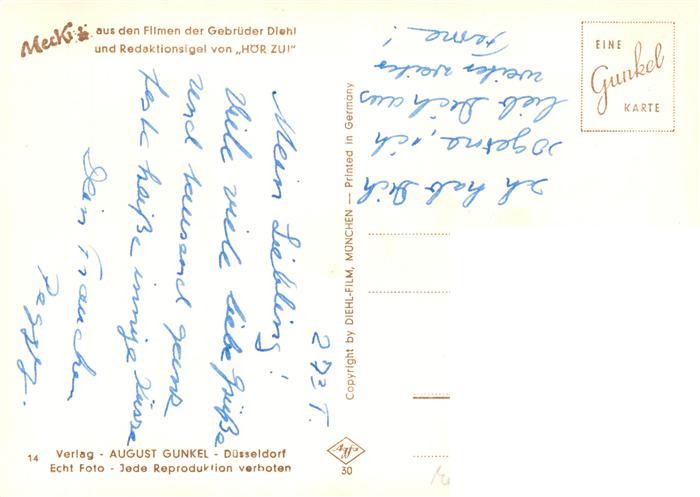 Mecki aus den Filmen der Gebrüder Diehl
und Redaktionsigel von „HÖR ZU!"
EINE
Gunkel
KARTE
Mein Liebling!
Viele viele liebe Grüße
und tausend ganz
feste heiße innige Küsse
Dein Frauchen
Peggy.
Ich hab Dich
so gerne, ich
lieb Dich aus
weiter weiter
Ferne!
Copyright by DIEHL-FILM, MÜNCHEN — Printed in Germany
14 Verlag - AUGUST GUNKEL - Düsseldorf
Echt Foto - Jede Reproduktion verboten
Agfa
30